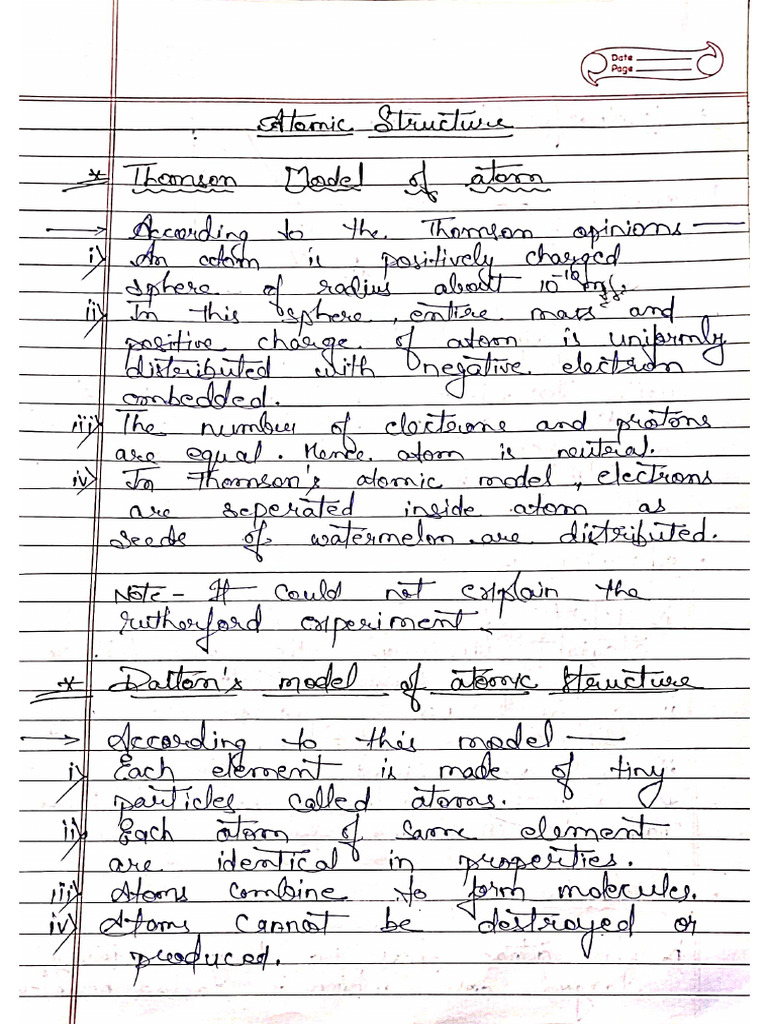 Date
Page
Atomic Structure
* Thomson Model of atom
→ According to the Thomson opinions —
i) An atom is positively charged
sphere of radius about 10⁻¹⁰
ii) In this sphere, entire mass and
positive charge of atom is uniformly
distributed with negative electron
embedded.
iii) The number of electrons and protons
are equal. Hence atom is neutral.
iv) In Thomson's atomic model, electrons
are seperated inside atom as
seeds of watermelon are distributed.
Note - It could not explain the
rutherford experiment.
* Dalton's model of atomic structure
→ According to this model —
i) Each element is made of tiny
particles called atoms.
ii) Each atom of same element
are identical in properties.
iii) Atoms combine to form molecules.
iv) Atoms cannot be destroyed or
produced.